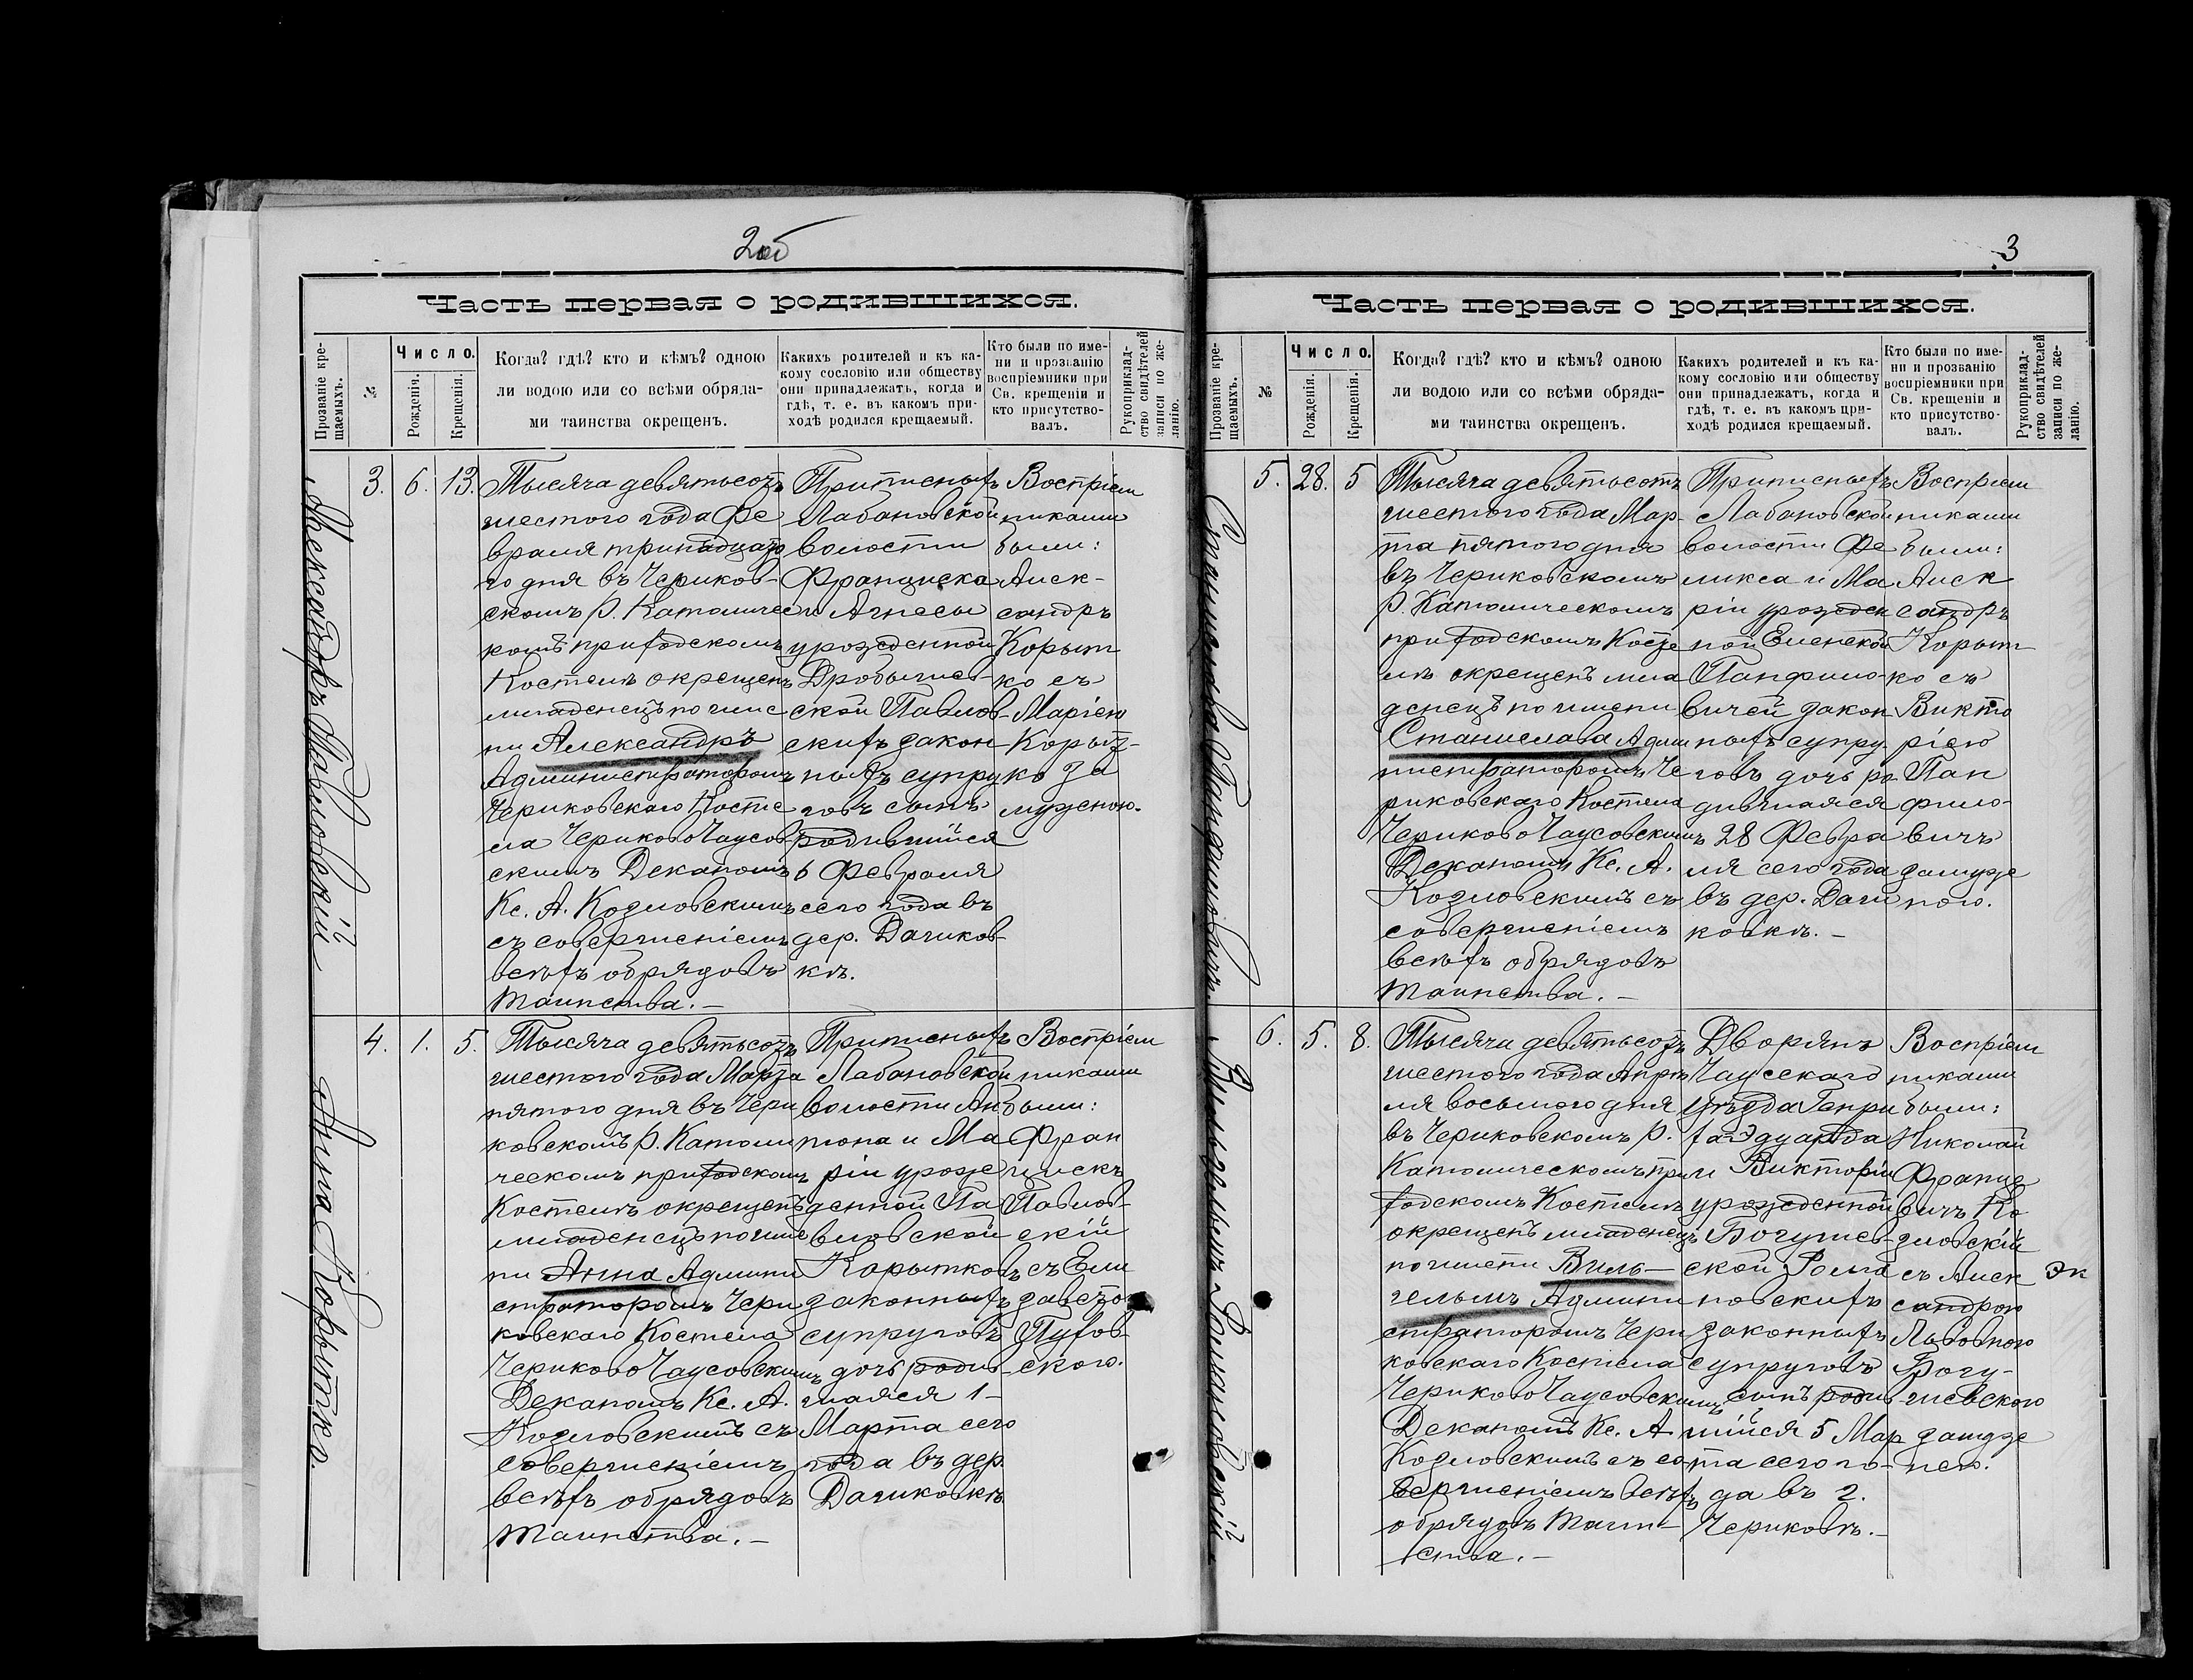 2об
Часть первая о родившихся.
Прозваніе кре-
щаемыхъ.
№
Число.
Рожденія.
Крещенія.
Когда? гдѣ? кто и кѣмъ? одною
ли водою или со всѣми обряда-
ми таинства окрещенъ.
Какихъ родителей и къ ка-
кому сословію или обществу
они принадлежатъ, когда и
гдѣ, т. е. въ какомъ при-
ходѣ родился крещаемый.
Кто были по име-
ни и прозванію
воспріемники при
Св. крещеніи и
кто присутство-
валъ.
Рукоприклад-
ство свидѣтелей
записи по же-
ланію.
Александръ Павловскій
3. 6. 13.
Тысяча девятьсотъ
шестого года Фе
враля тринадцата
го дня въ Чериков-
скомъ Р. Католичес
комъ приходскомъ
Костелѣ окрещенъ
младенецъ по име
ни Александръ
Администраторомъ
Чериковскаго Косте
ла Чериково Чаусов
скимъ Деканомъ
Кс. А. Козловскимъ
съ совершеніемъ
всѣхъ обрядовъ
таинства. —
Приписныхъ
Лабановской
волости
Франциска
и Агнесы
урожденной
Дробышев-
ской Павлов-
скихъ закон
ныхъ супру
говъ сынъ
родившійся
6 Февраля
сего года въ
дер. Дашков-
кѣ.
Воспріем
никами
были:
Алек-
сандръ
Корыт
ко съ
Маріею
Корыт-
ко за
мужною.
Анна Корытко.
4. 1. 5.
Тысяча девятьсотъ
шестого года Марта
пятого дня въ Чери
ковскомъ Р. Католи
ческомъ приходскомъ
Костелѣ окрещенъ
младенецъ по име
ни Анна Админи
страторомъ Чери
ковскаго Костела
Чериково Чаусовскимъ
Деканомъ Кс. А.
Козловскимъ съ
совершеніемъ
всѣхъ обрядовъ
таинства. —
Приписныхъ
Лабановской
волости Ан
тона и Ма
ріи урож
денной Па
вловской
Корытковъ
законныхъ
супруговъ
дочь родив
шаяся 1-
Марта сего
года въ дер.
Дашковкѣ.
Воспріем
никами
были:
Фран
цискъ
Павлов-
скій
съ Ели
заветою
Пухов-
скою.
3
Часть первая о родившихся.
Прозваніе кре-
щаемыхъ.
№
Число.
Рожденія.
Крещенія.
Когда? гдѣ? кто и кѣмъ? одною
ли водою или со всѣми обряда-
ми таинства окрещенъ.
Какихъ родителей и къ ка-
кому сословію или обществу
они принадлежатъ, когда и
гдѣ, т. е. въ какомъ при-
ходѣ родился крещаемый.
Кто были по име-
ни и прозванію
воспріемники при
Св. крещеніи и
кто присутство-
валъ.
Рукоприклад-
ство свидѣтелей
записи по же-
ланію.
Станислава Панфиловичъ.
5. 28. 5
Тысяча девятьсотъ
шестого года Мар-
та пятого дня
въ Чериковскомъ
Р. Католическомъ
приходскомъ Косте
лѣ окрещенъ мла
денецъ по имени
Станислава Адми
нистраторомъ Че
риковскаго Костела
Чериково Чаусовскимъ
Деканомъ Кс. А.
Козловскимъ съ
совершеніемъ
всѣхъ обрядовъ
таинства. —
Приписныхъ
Лабановской
волости Фе
ликса и Ма
ріи урожден
ной Еленской
Панфило-
вичей закон
ныхъ супру-
говъ дочь ро
дившаяся
28 Февра
ля сего года
въ дер. Даш
ковкѣ. —
Воспріем
никами
были:
Алек
сандръ
Корыт-
ко съ
Викто
ріею
Пан
фило-
вичъ
замуж
ною.
Вильгельмъ Романовскій.
6. 5. 8.
Тысяча девятьсотъ
шестого года Апрѣ
ля восьмого дня
въ Чериковскомъ Р.
Католическомъ при
ходскомъ Костелѣ
окрещенъ младенецъ
по имени Виль—
гельмъ Админи
страторомъ Чери
ковскаго Костела
Чериково Чаусовскимъ
Деканомъ Кс. А
Козловскимъ съ со-
вершеніемъ всѣхъ
обрядовъ таин-
ства. —
Дворянъ
Чаусскаго
уѣзда Генри
ха-Эдуарда
и Викторіи
урожденной
Богушев-
ской Рома
новскихъ
законныхъ
супруговъ
сынъ родив
шійся 5 Мар
та сего го-
да въ г.
Чериковѣ. —
Воспріем
никами
были:
Николай
Францо
вичъ Ко
зловскій
съ Алек
сандрою
Львовною
Богу-
шевскою
замуж
нею.
Эк